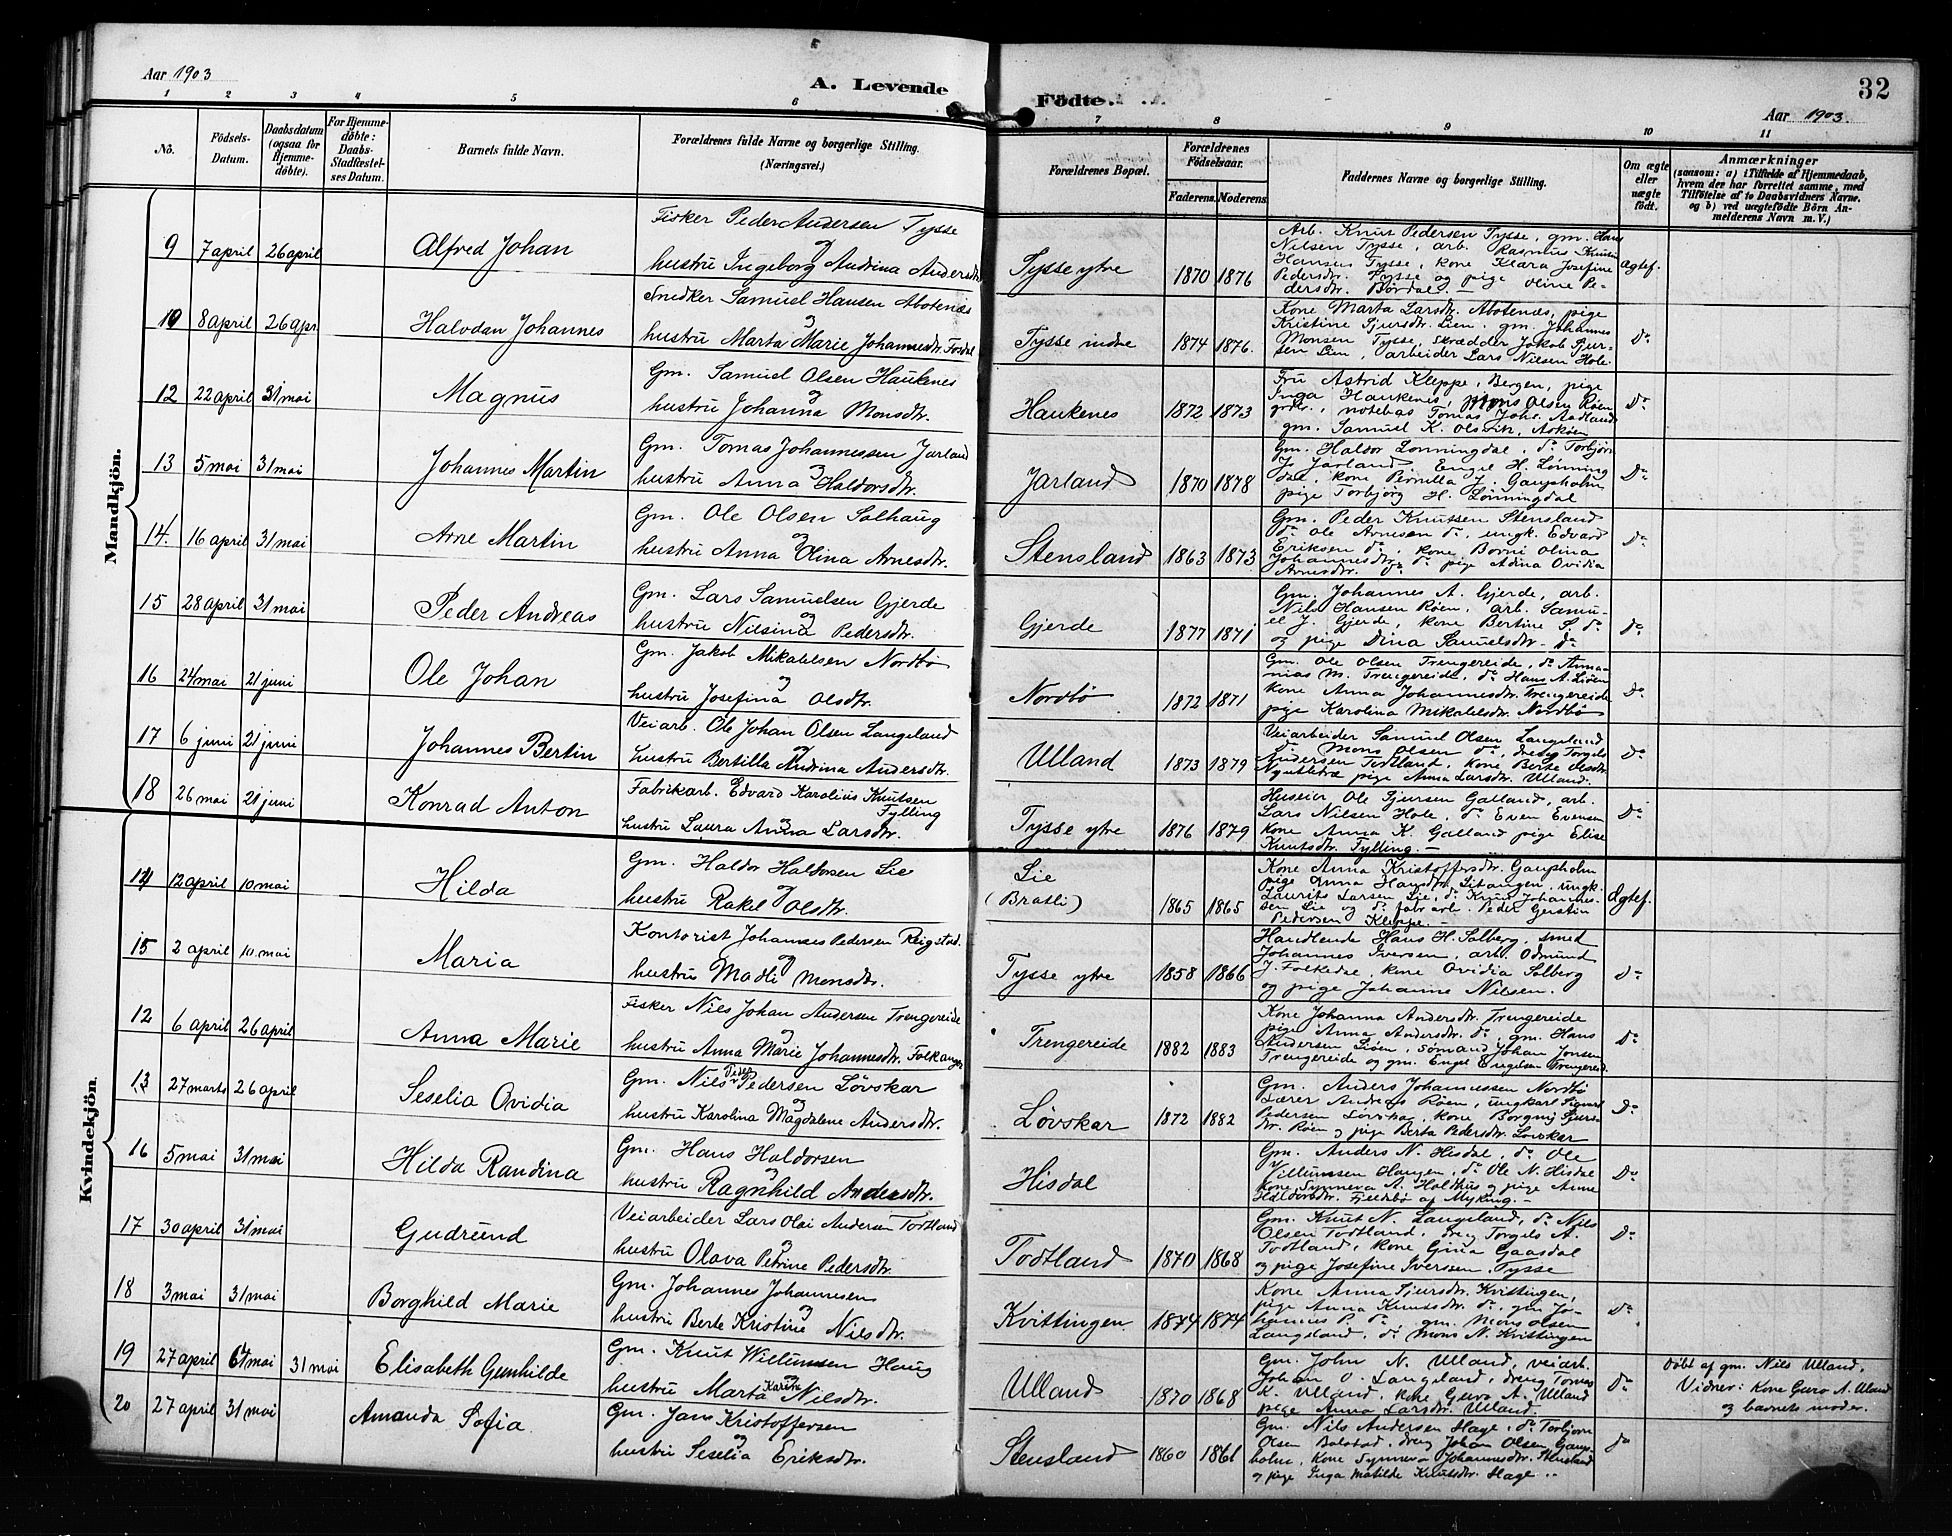 Aar 1903
A. Levende
Födte.
32
Aar 1903.
1 2 3 4 5 6 7 8 9 10 11
Nö.
Födsels-
Datum.
Daabsdatum
(ogsaa for
Hjemme-
döbte).
For Hjemme-
döbte:
Daabs-
Stadfæstel-
ses Datum.
Barnets fulde Navn.
Forældrenes fulde Navne og borgerlige Stilling.
(Næringsvei.)
Forældrenes Bopæl.
Forældrenes
Födselsaar.
Faderens. Moderens.
Faddernes Navne og borgerlige Stilling.
Om ægte
eller
uægte
födt.
Anmærkninger
(saasom: a) i Tilfælde af Hjemmedaab,
hvem der har forrettet samme, med
Tilföielse af to Daabsvidners Navne,
og b) ved uægtefödte Börn An-
melderens Navn m. V.)
Mandkjön.
9 7 april 26 april Alfred Johan
Fisker Peder Andersen Tysse
hustru Ingeborg Andrina Andersdtr.
Tysse ytre 1870 1876
Arb. Knut Pedersen Tysse, gm. Hans
Nilsen Tysse, arb. Rasmus Knutsen
Hansen Tysse, kone Klara Josefine
Pedersdtr. Tysse og pige Oline Pe-
dersdtr. Børdal. —
Ægtef.
10 8 april 26 apr. Halvdan Johannes
Snedker Samuel Hansen Abotenæs
hustru Marta Marie Johannesdtr. Fosdal
Tysse indre 1874 1876.
Kone Marta Larsdtr. Abotenæs, pige
Kristine Sjursdtr. Lien, gm. Johannes
Monsen Tysse, skrædder Jakob Sjur-
sen Lien, arbeider Lars Nilsen Hole.
Do
12 22 april 31 mai Magnus
Gm. Samuel Olsen Haukenes
hustru Johanna Monsdtr.
Haukenes 1872 1873
Fru Astrid Kleppe, Bergen, pige
Inga Haukenes, Mons Olsen Røen
grkr., notebas Tomas Johs. Aadland
gm. Samuel K. Olsvik, Askøen
Do
13 5 mai 31 mai Johannes Martin
Gm. Tomas Johannessen Jarland
hustru Anna Haldorsdtr.
Jarland 1870 1878
Gm. Haldor Lønningdal, do Torbjørn
Js Jarland, Engel H. Lønning
dal, kone Pernilla J. Gaupholm
pige Torbjørg H. Lønningdal
Do
14. 16 april 31 mai Arne Martin
Gm. Ole Olsen Solhaug
hustru Anna Olina Arnesdtr.
Stensland 1863 1873
Gm. Peder Knutsen Stensland
do Ole Arnesen do, ungk. Edvard
Eriksen do, kone Borni Olina
Johannesdtr. do pige Adina Ovidia
Arnesdtr. do
Do
15 28 april 31 mai Peder Andreas
Gm. Lars Samuelsen Gjerde
hustru Nilsina Pedersdtr.
Gjerde 1877 1871
Gm. Johannes A. Gjerde, arb.
Nils Hansen Røen, arb. Samu-
el J. Gjerde, kone Bertine S. do
og pige Dina Samuelsdtr. do
Do
16 24 mai 21 juni Ole Johan
Gm. Jakob Mikalelsen Nordbø
hustru Josefina Olsdtr.
Nordbø 1872 1871
Gm. Ole Olsen Trengereide, do Anna-
nias M. Trengereide, do Hans A. Liøen
kone Anna Johannesdtr. Trengereide
pige Karolina Mikalelsdtr. Nordbø
Do
17 6 juni 21 juni Johannes Bertin
Veiarb. Ole Johan Olsen Langeland
hustru Bertilla Andrina Andersdtr.
Ulland 1873 1879
Veiarbeider Samuel Olsen Langeland
do Mons Olsen do, dreng Torgels
Andersen Todtland, kone Berte Olsdtr.
pige Anna Larsdtr. Ulland.
Do
18 26 mai 21 juni Konrad Anton
Fabrikarb. Edvard Karolius Knutsen
Fylling
hustru Laura Anna Larsdtr.
Tysse ytre 1876 1879
Huseier Ole Sjursen Galland, arb.
Lars Nilsen Hole, do Even Evensen
kone Anna K. Galland pige Elise
Knutsdtr. Fylling. —
Do
Kvindekjön.
14 12 april 10 mai Hilda
Gm. Haldor Haldorsen Lie
hustru Rakel Olsdtr.
Lie
(Bratli) 1865 1865
Kone Anna Kristoffersdtr. Gaupholm
pige Anna Hansdtr. Litangen, ungk.
Laurits Larsen Lie, do Knut Johannes-
sen Lie og do fabr.arb. Peder Gerstin
Pedersen Kleppe.
Ægtef.
15 2 april 10. mai Maria
Kontorist Johannes Pedersen Reigstad.
hustru Madli Monsdtr.
Tysse ytre 1858 1866
Handlende Hans H. Solberg, smed
Johannes Iversen, arb. Odmund
J. Folkedal, kone Ovidia Solberg
og pige Johanne Nilsen.
Do
12 6 april 26 april Anna Marie
Fisker Nils Johan Andersen Trengereide
hustru Anna Marie Johannesdtr. Folkanger
Trengereide 1882 1883
Kone Johanna Andersdtr. Trengereide
pige Anna Andersdtr. do, gm. Hans
Andersen Liøen, sømand Johan Jonsen
Trengereide og gm. Engel Engelsen Trengereid.
Do
13 27 marts 26 april Seselia Ovidia
Gm. Nils Peder Pedersen Løvskar
hustru Karolina Magdalene Andersdtr.
Løvskar 1872 1882
Gm. Anders Johannessen Nordbø
Lærer Andreas Røen, ungkarl Sigurd
Pedersen Løvskar, kone Borgny Sjurs-
dtr. Røen og pige Berta Pedersdtr. Løvskar
Do
16 5 mai 31 mai Hilda Randina
Gm. Hans Haldorsen
hustru Ragnhild Andersdtr.
Hisdal
Gm. Anders N. Hisdal, do Ole
Villumssen Haugen, do Ole N. Hisdal
kone Synneva A. Holdhus og pige Anna
Haldorsdtr. Fjeldsbø af Myking. —
Do
17 30 april 31 mai Gudrund
Veiarbeider Lars Olai Andersen Todtland
hustru Olava Petrine Pedersdtr.
Todtland 1870 1868
Gm. Knut N. Langeland, do Nils
Olsen Todtland, dreng Torgels A.
Todtland, kone Gina Gaasdal
og pige Josefine Iversen, Tysse
Do
18 3 mai 31 mai Borghild Marie
Gm. Johannes Johannesen
hustru Berte Kristine Nilsdtr.
Kvittingen. 1874 1874
Kone Anna Sjursdtr. Kvittingen,
pige Anna Knutsdtr. do, gm Jo-
hannes P. do, gm. Mons Olsen
Langeland, do Mons N. Kvittingen
Do
19 27 april 31 mai Elisabeth Gunhilde
Gm. Knut Willumsen Haug
hustru Marta Karina Nilsdtr.
Ulland 1870 1868
Gm. John N. Ulland, veiarb.
Johan O. Langeland, dreng Tomas
K. Ulland, kone Guro A. Ulland
pige Anna Larsdtr. Ulland.
Do
Döbt af gm. Nils Ulland.
Vidner: Kone Guro A. Ulland
og barnets moder.
20 27 april 31 mai Amanda Sofia
Gm. Jans Kristoffersen
hustru Seselia Eriksdtr.
Stensland 1860 1861
Gm. Nils Andersen Hage, do Torbjørn
Olsen Bolstad, dreng Johan Olsen Gaup-
holm, kone Synneva Johannesdtr. Stensland
og pige Inga Matilde Knutsdtr. Hage ..
Do